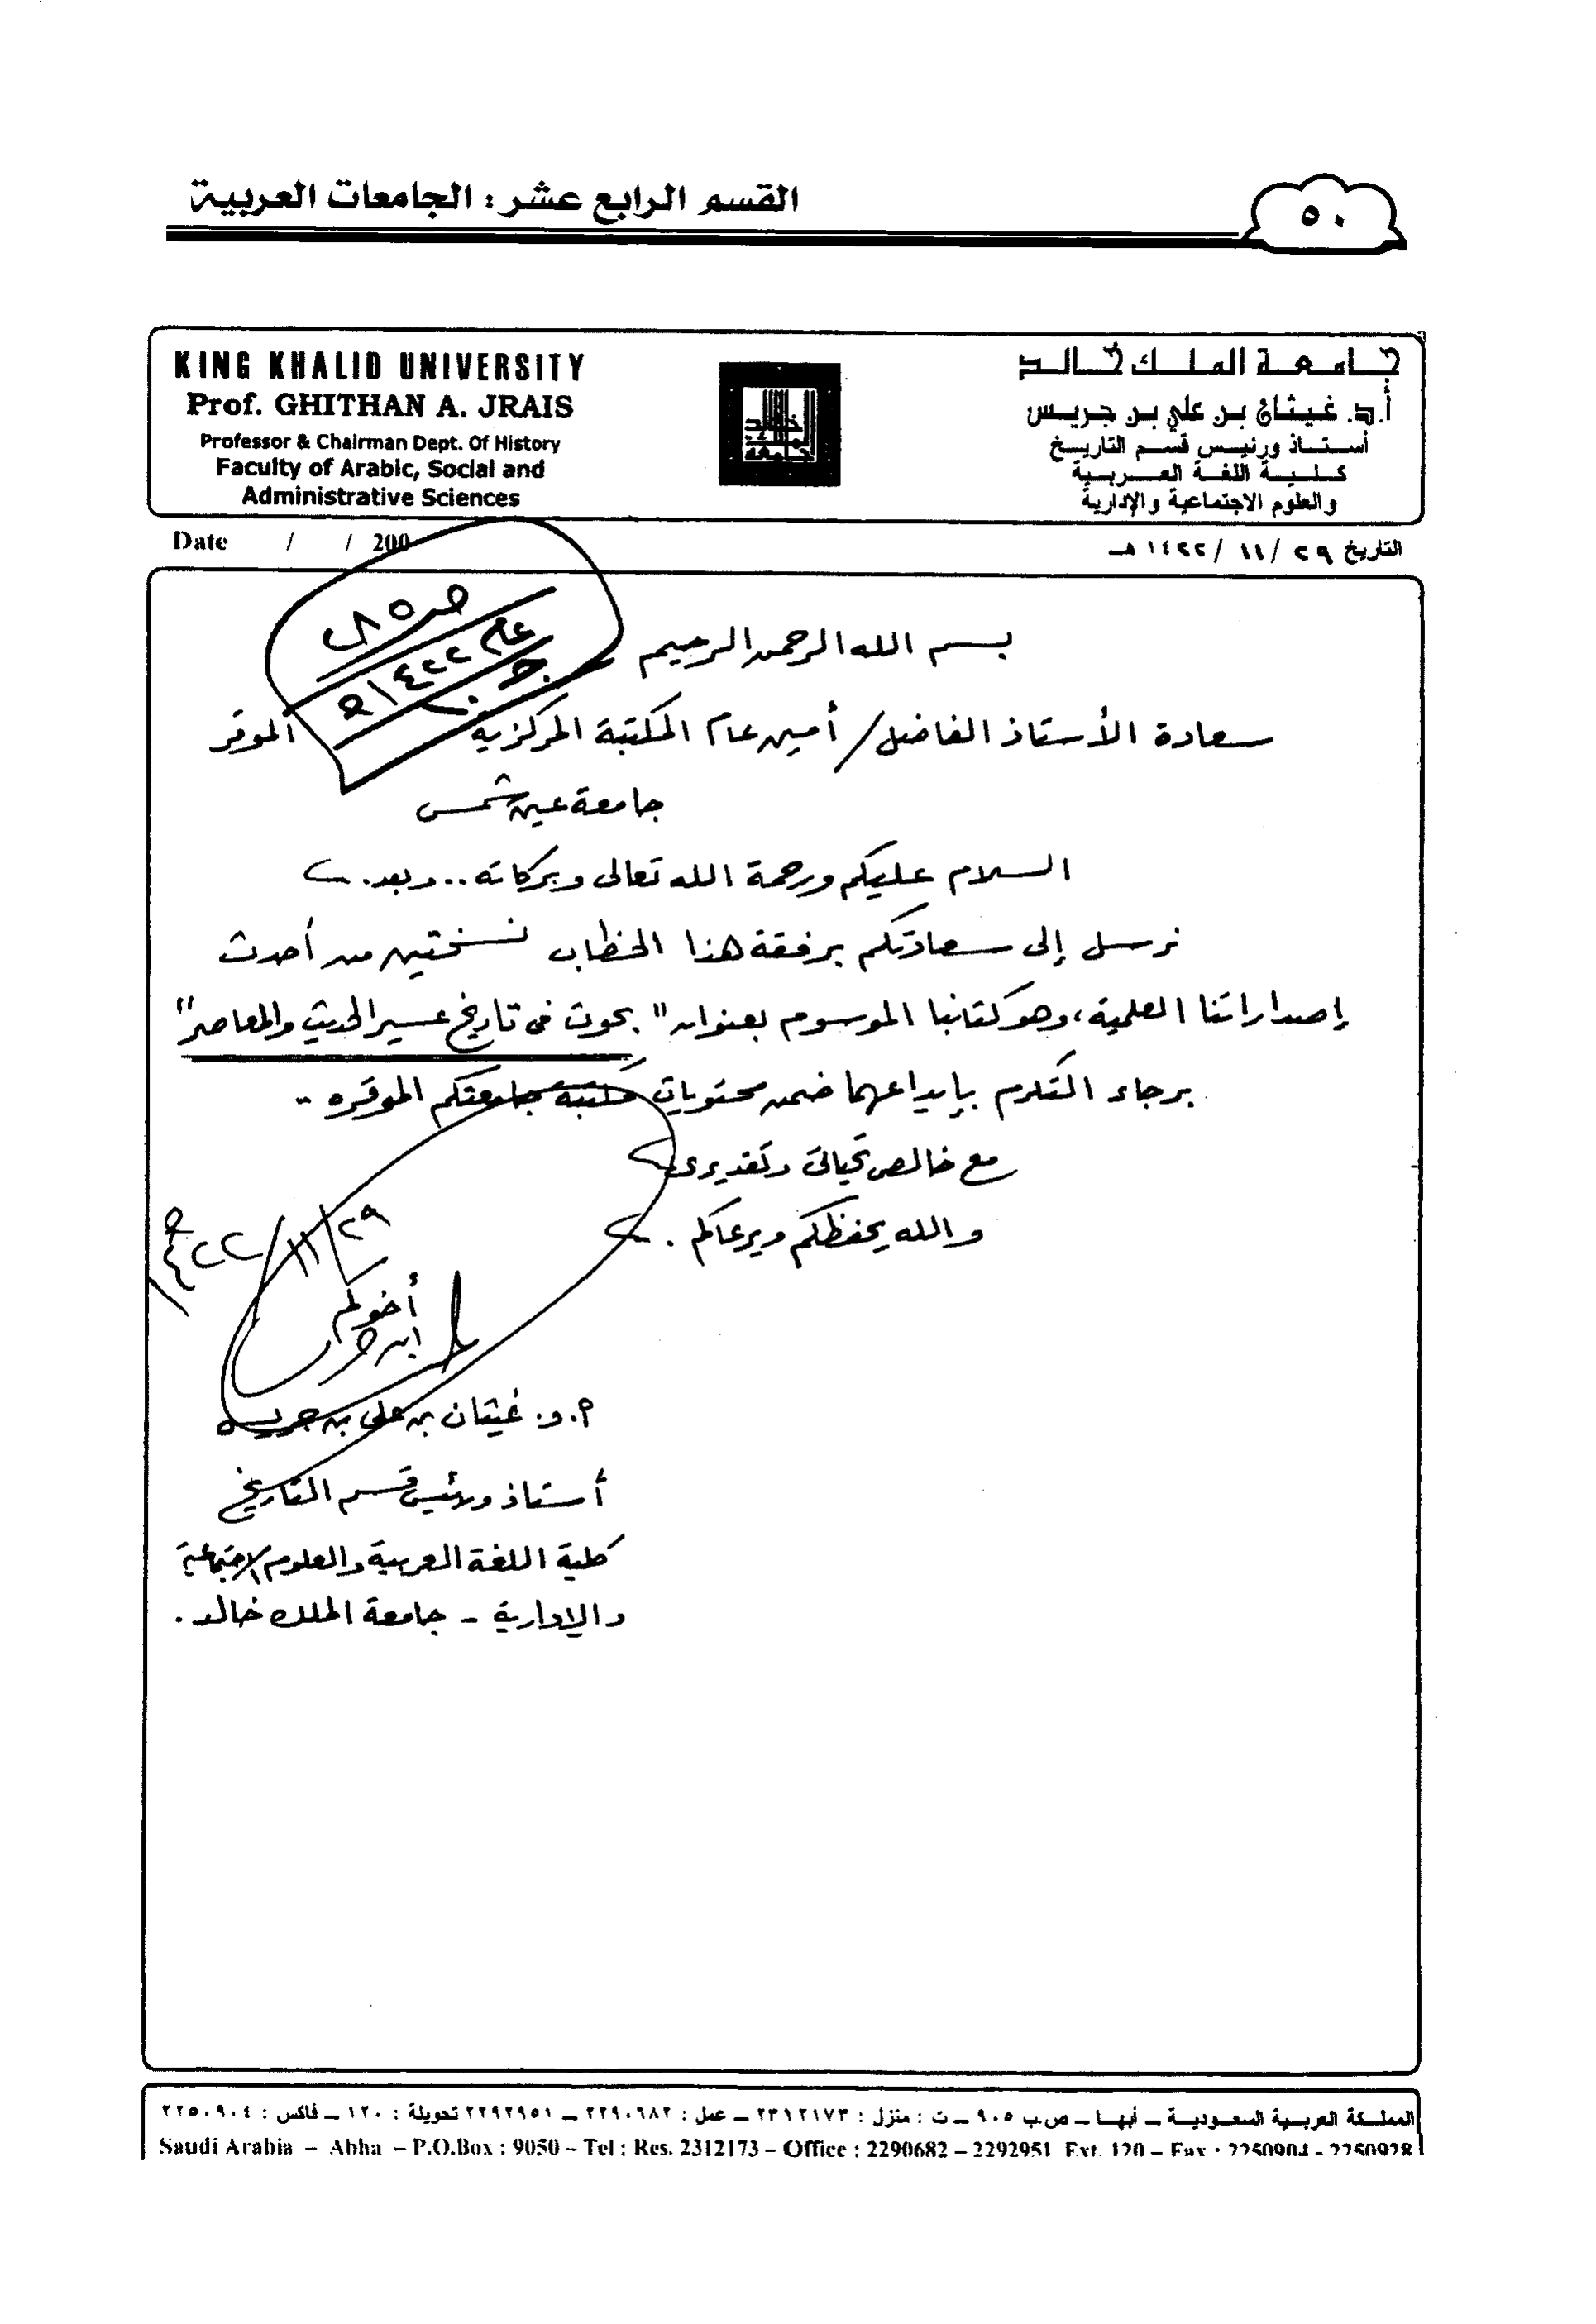 القسم الرابع عشر : الجامعات العربية
٥٠
KING KHALID UNIVERSITY
Prof. GHITHAN A. JRAIS
Professor & Chairman Dept. Of History
Faculty of Arabic, Social and
Administrative Sciences
جـامـعـة الملـك خـالـد
أ.د. غيثان بن علي بن جريس
أستـاذ ورئيـس قسـم التاريـخ
كـلـيـة اللغـة العـربـيـة
والعلوم الاجتماعية والإدارية
Date / / 200
التاريخ ٢٩ / ١١ / ١٤٢٢ هـ
عام ١٤٢٢هـ
بسم الله الرحمن الرحيم
سعادة الأستاذ الفاضل / أمين عام المكتبة المركزية الموقر
جامعة عين شمس
السلام عليكم ورحمة الله تعالى وبركاته .. وبعد .
نرسل إلى سعادتكم برفقة هذا الخطاب نسختين من أحدث
إصداراتنا العلمية ، وهو كتابنا الموسوم بعنوان " بحوث في تاريخ عسير الحديث والمعاصر "
برجاء التكرم بإيداعهما ضمن محتويات مكتبة جامعتكم الموقره ..
مع خالص تحياتى وتقديرى
والله يحفظكم ويرعاكم .
٢٩/١١/١٤٢٢هـ
أخوكم
ابن
أ . د . غيثان بن على بن جريس
أستاذ ورئيس قسم التاريخ
كلية اللغة العربية والعلوم الاجتماعية
والإدارية - جامعة الملك خالد .
المملكة العربية السعودية – أبها – ص.ب ٩٠٥ – ت : منزل : ٢٣١٢١٧٣ – عمل : ٢٢٩٠٦٨٢ – ٢٢٩٢٩٥١ تحويلة : ١٢٠ – فاكس : ٢٢٥٠٩٠٤
Saudi Arabia – Abha – P.O.Box : 9050 – Tel : Res. 2312173 – Office : 2290682 – 2292951 Ext. 120 – Fax : 2250904 - 2250928